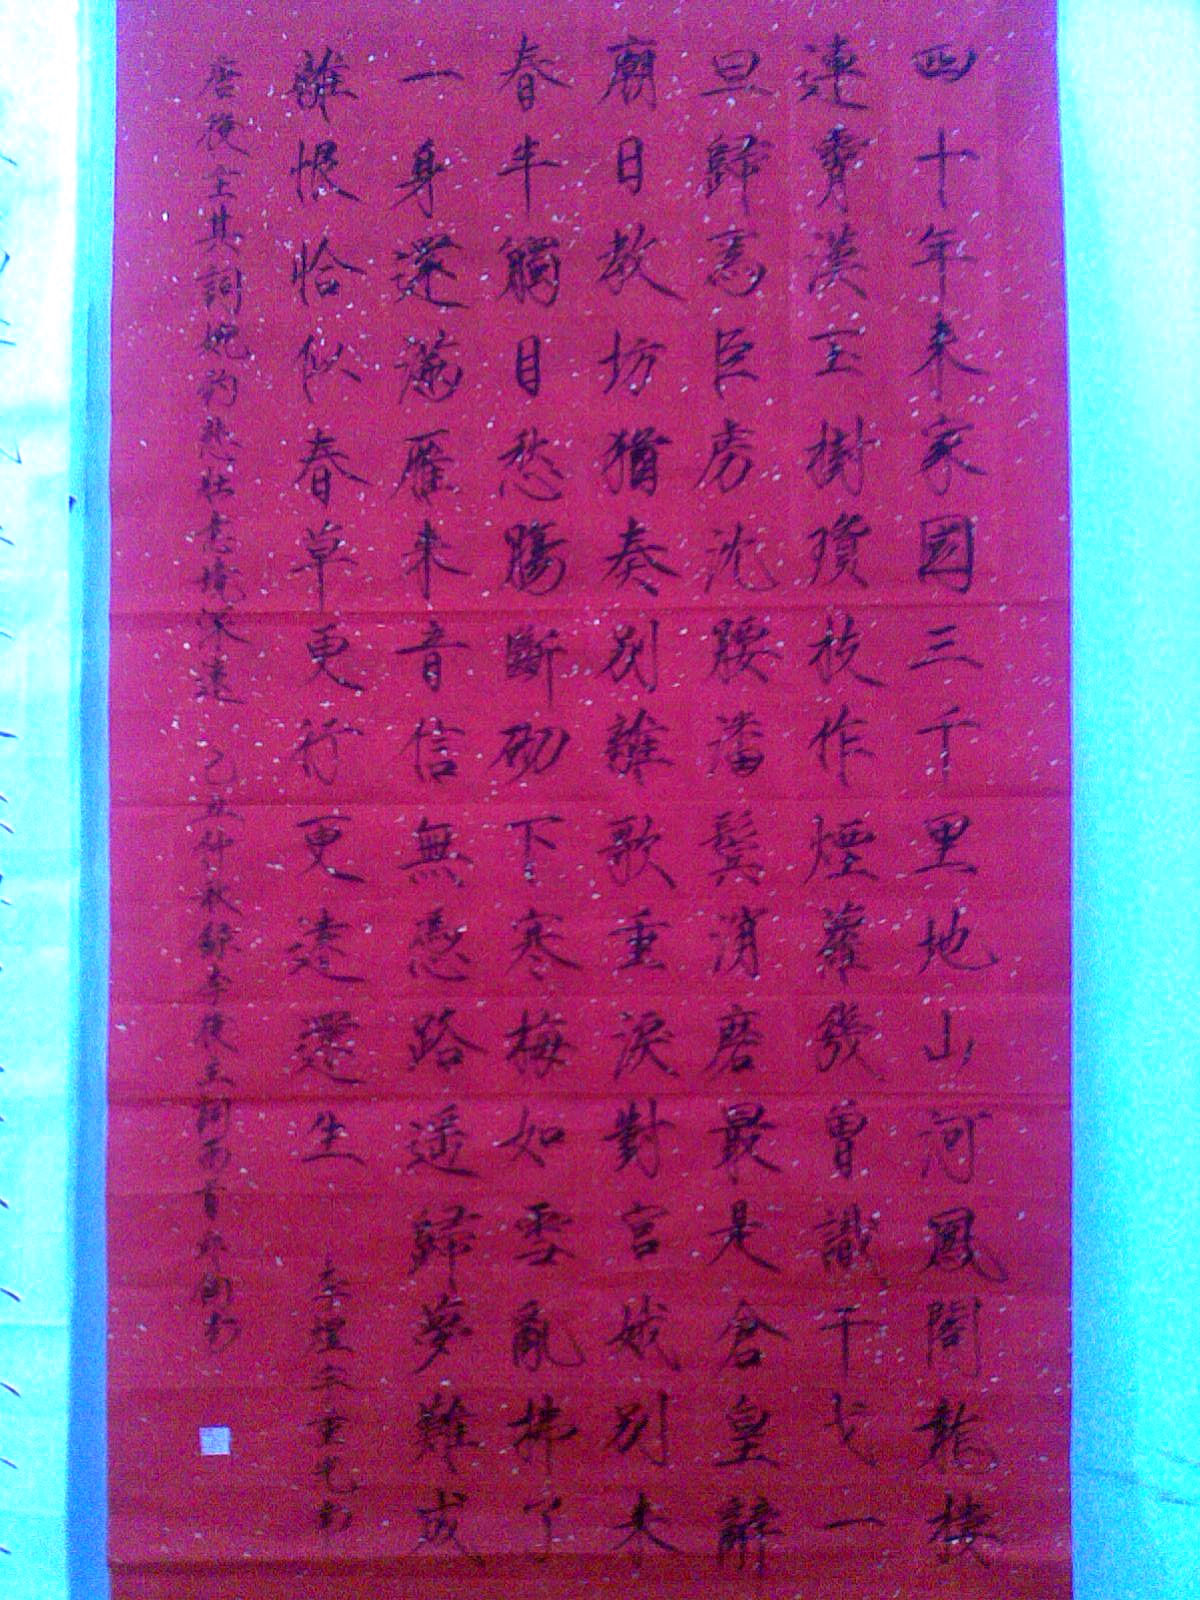 四十年来家國三千里地山河鳳閣龍楼
連霄漢玉樹瓊枝作煙蘿幾曾識干戈一
旦歸為臣虜沈腰潘鬢消磨最是倉皇辭
廟日教坊猶奏別離歌重淚對宮娥別来
春半觸目愁腸斷砌下寒梅如雪亂拂了
一身還滿雁来音信無憑路遥歸夢難成
離恨恰似春草更行更遠還生 李煜字重光
唐後主其詞婉約悲壯意境深遠 乙丑仲秋錄李後主詞两首